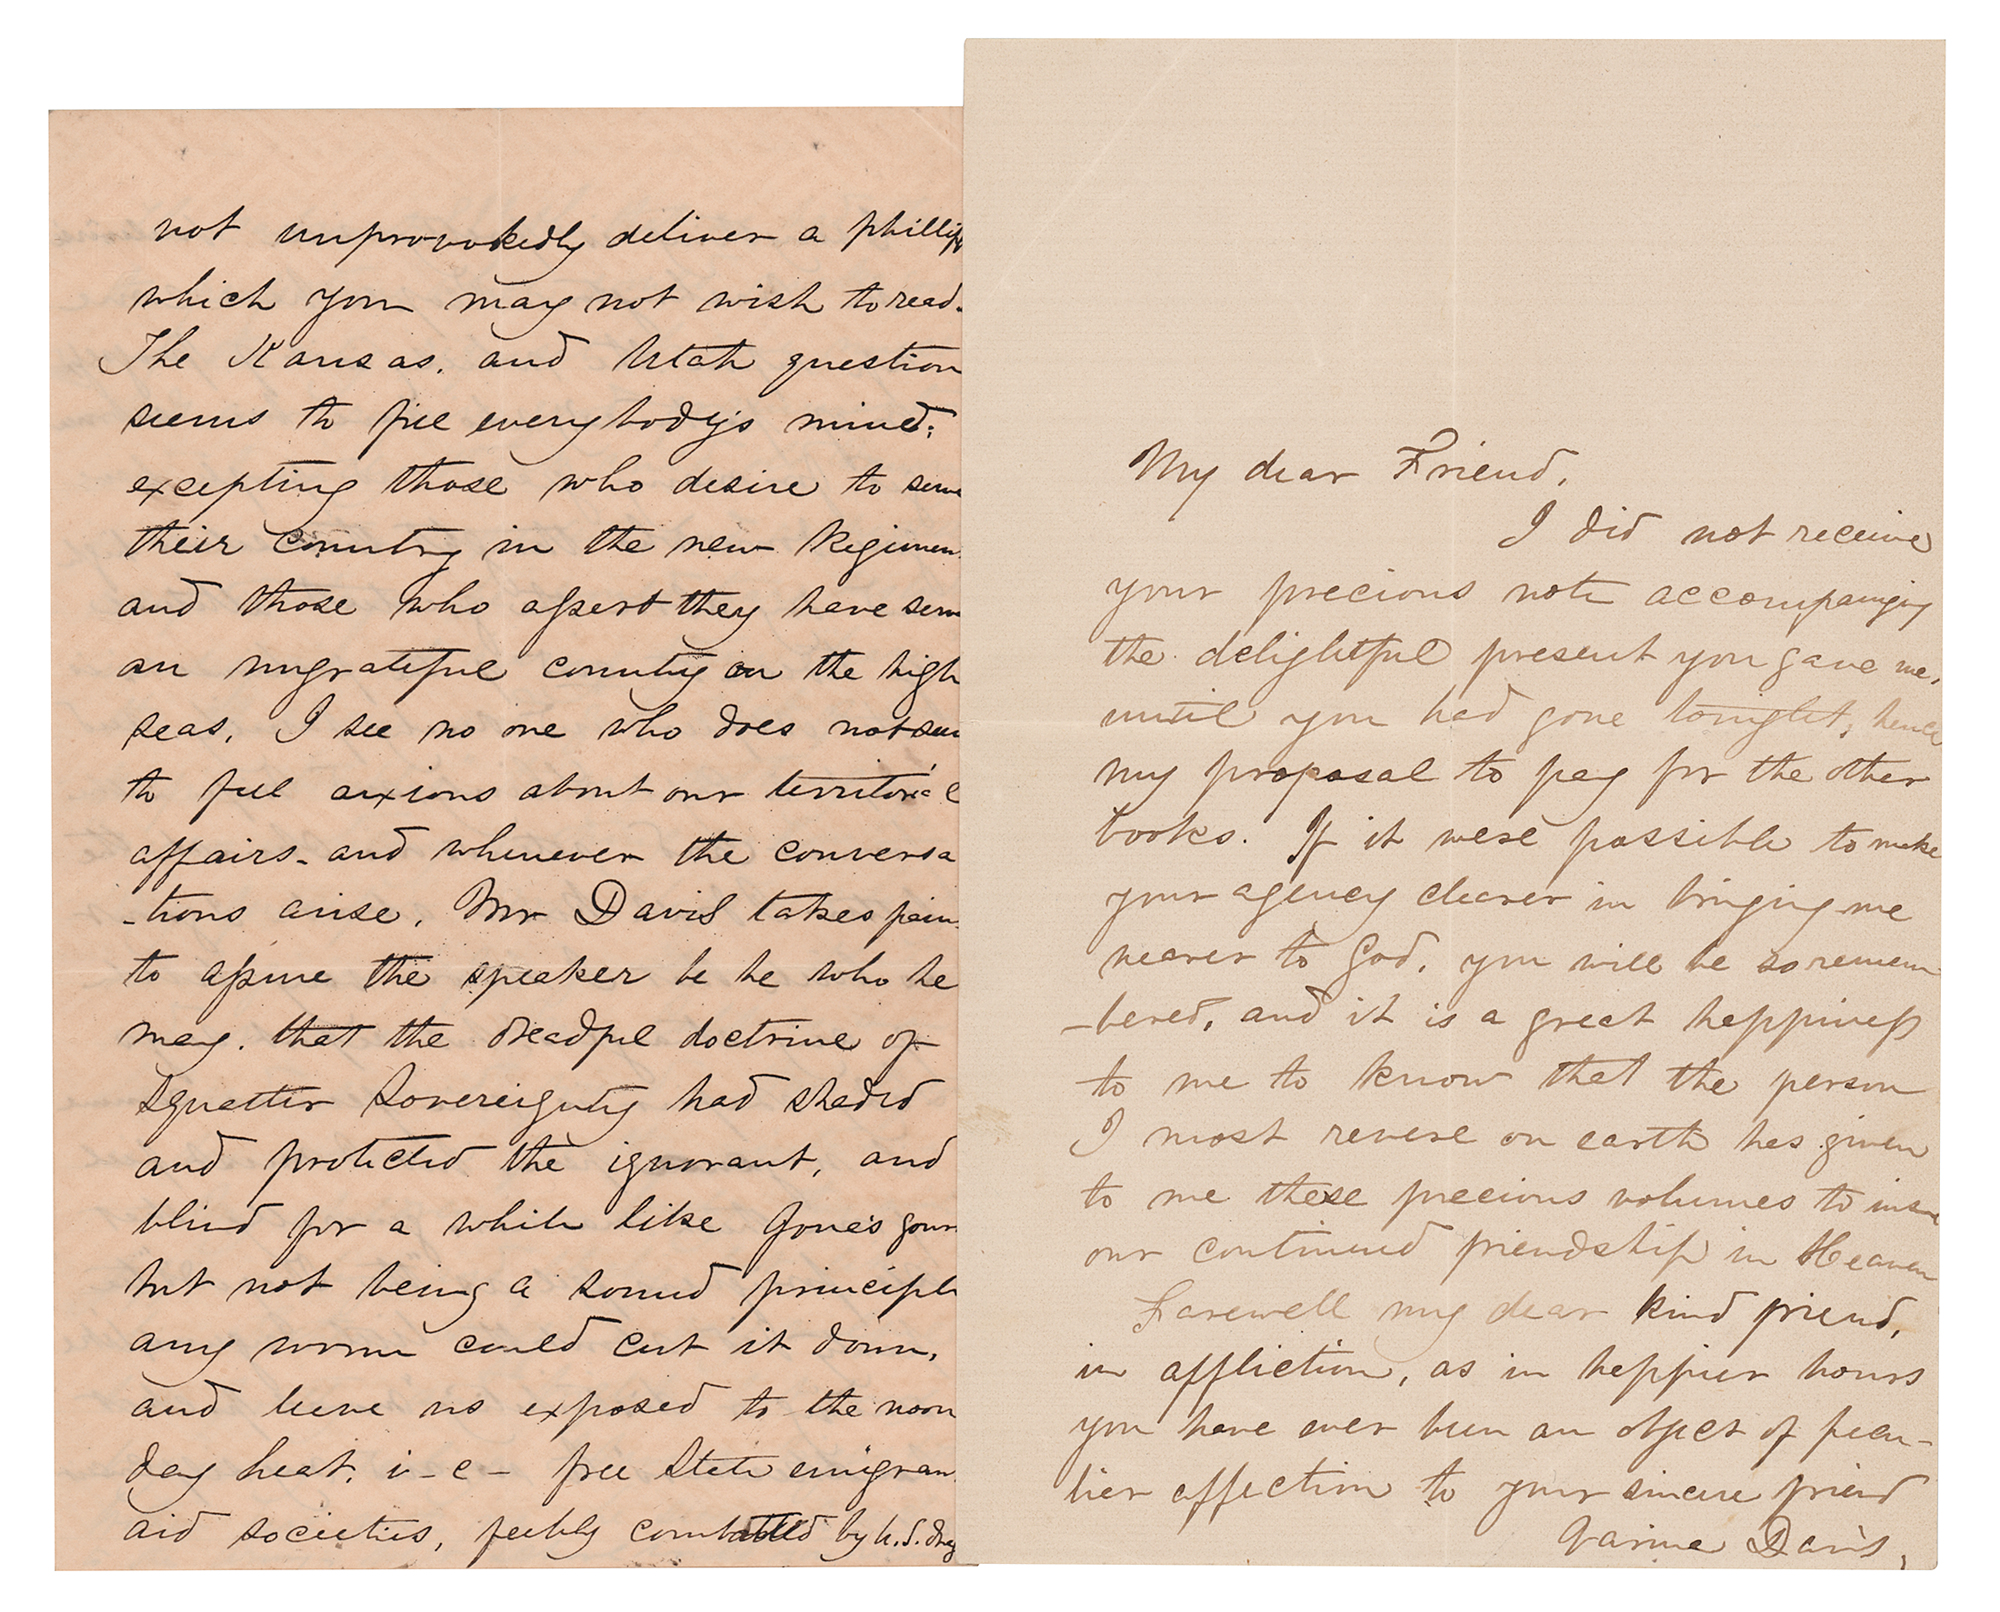 not unprovokedly deliver a phillip
which you may not wish to read.
The Kansas. and Utah question
seems to fill everybody's mind;
excepting those who desire to serve
their country in the new Regimen
and those who assert they have serv
an ungrateful country on the high
seas. I see no one who does not seem
to feel anxious about our territorial
affairs - and whenever the conversa
-tions arise, Mr Davis takes pain
to assure the speaker be he who he
may. that the dreadful doctrine of
squatter sovereignty had shaded
and protected the ignorant, and
blind for a while like Jone's gour
but not being a sound principle
any worm could cut it down,
and leave us exposed to the noon
day heat. i-e- free State emigran
aid societies, feebly combatted by U.S.
My dear Friend,
I did not receive
your precious note accompanying
the delightful present you gave me,
until you had gone tonight, hence
my proposal to pay for the other
books. If it were possible to make
your agency clearer in bringing me
nearer to God, you will be so remem
-bered, and it is a great happiness
to me to know that the person
I most revere on earth has given
to me these precious volumes to insure
our continued friendship in Heaven
Farewell my dear kind friend,
in affliction, as in happier hours
you have ever been an object of pecu-
liar affection to your sincere friend
Varina Davis,